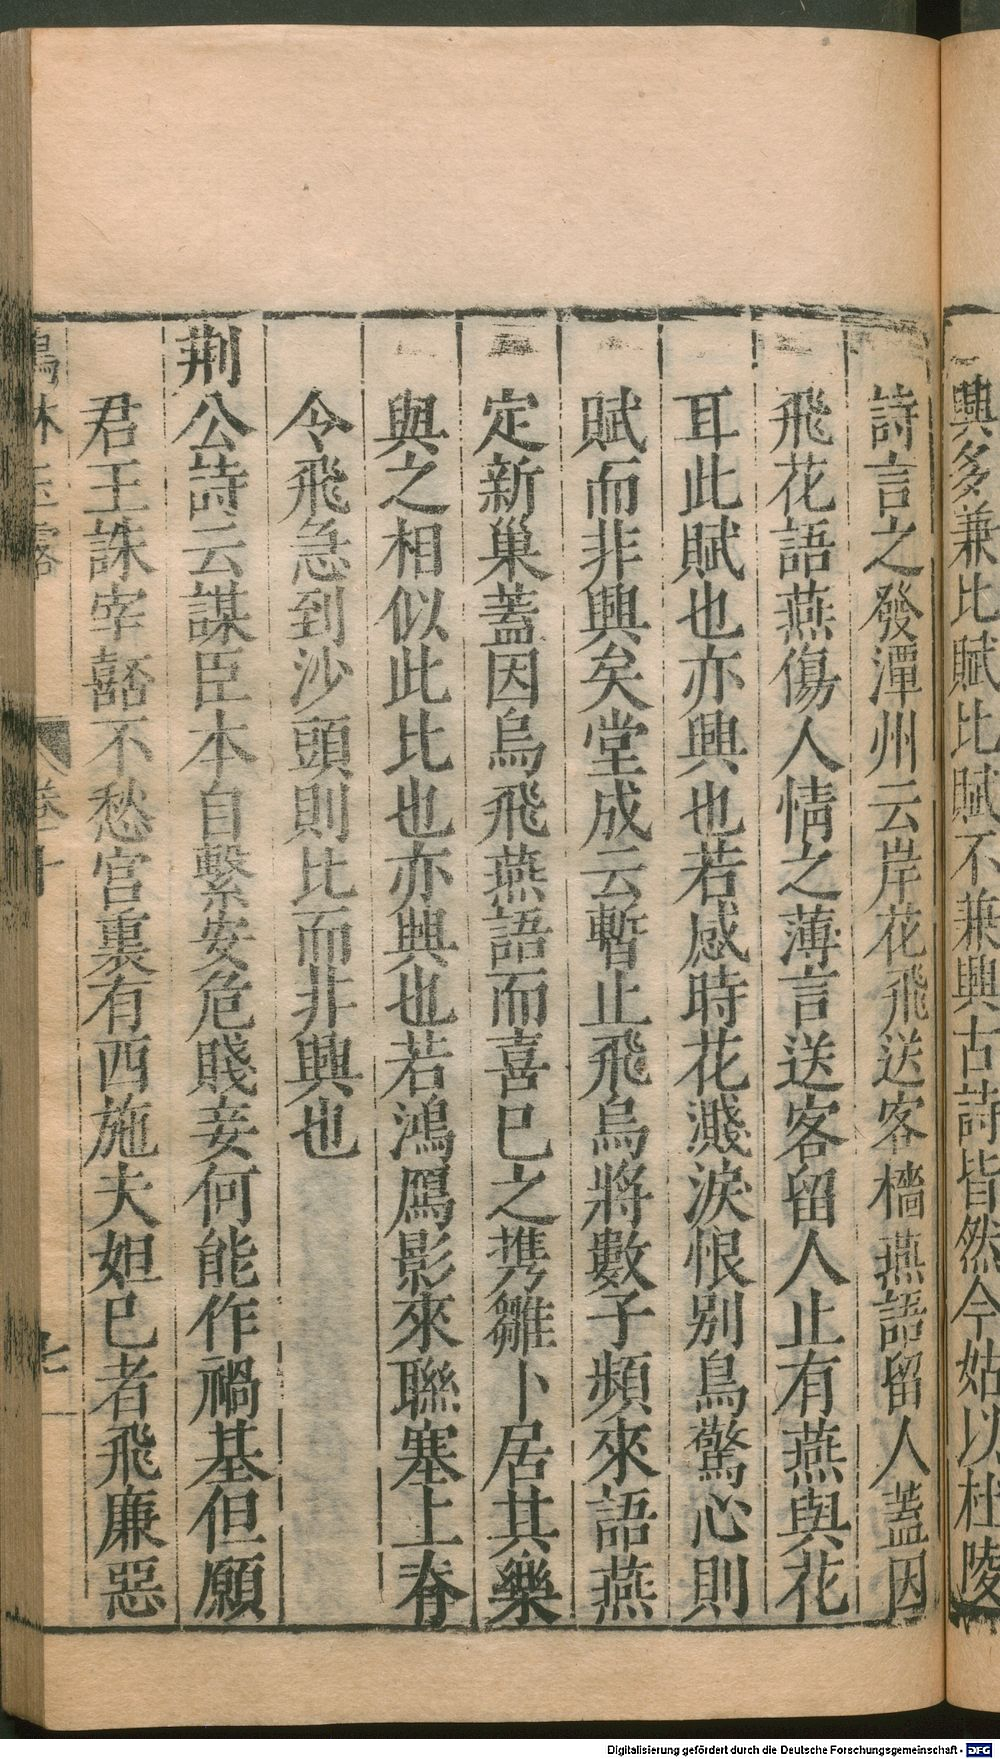 興多兼比賦比賦不兼興古詩皆然今姑以杜陵
詩言之發潭州云岸花飛送客檣燕語留人蓋因
飛花語燕傷人情之薄言送客留人止有燕與花
耳此賦也亦興也若感時花濺淚恨别鳥驚心則
賦而非興矣堂成云暫止飛烏將數子頻來語燕
定新巢蓋因烏飛燕語而喜已之携雛卜居其樂
與之相似此比也亦興也若鴻鴈影來聯塞上脊
令飛急到沙頭則比而非興也
荆公詩云謀臣本自繫安危賤妾何能作禍基但願
君王誅宰嚭不愁宫裏有西施夫妲已者飛廉惡
林玉露
卷十
七
Digitalisierung gefördert durch die Deutsche Forschungsgemeinschaft - DFG